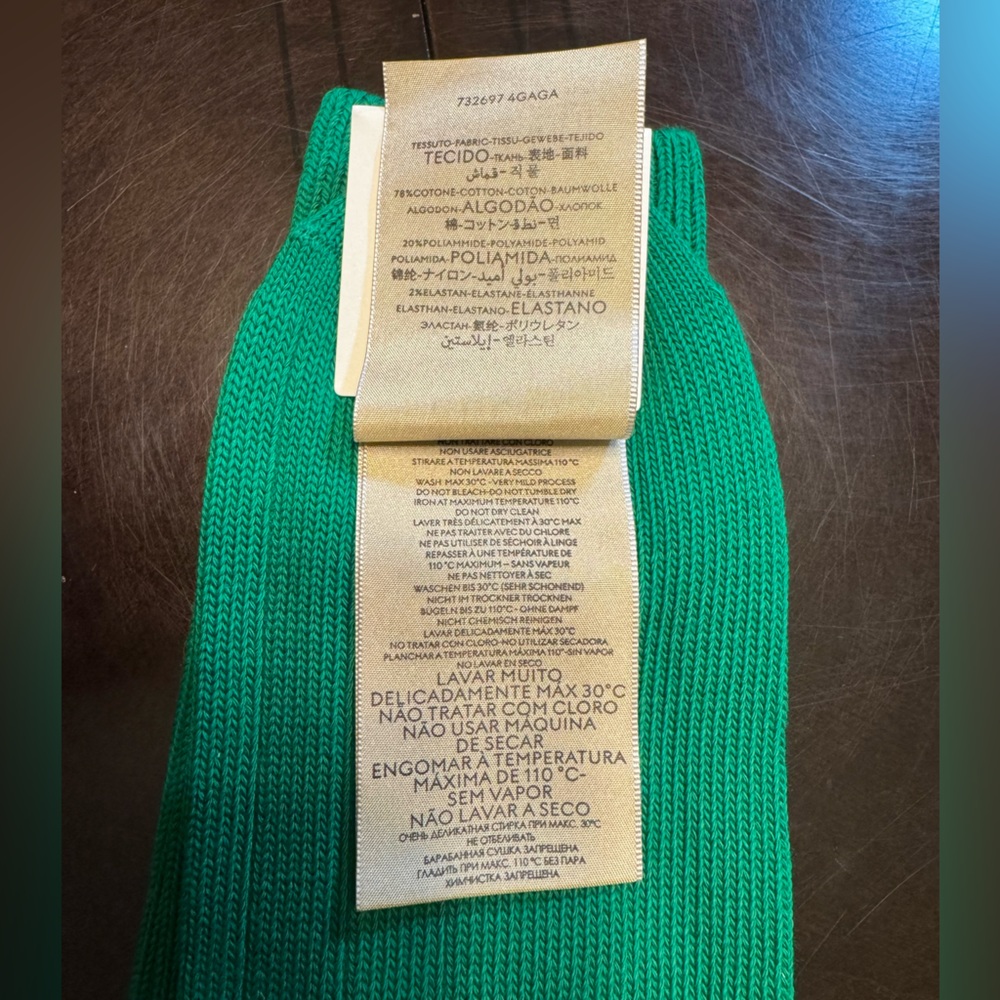 732697 4GAGA
TESSUTO-FABRIC-TISSU-GEWEBE-TEJIDO
TECIDO-ТКАНЬ-表地-面料
قماش-직물
78%COTONE-COTTON-COTON-BAUMWOLLE
ALGODON-ALGODÃO-ХЛОПОК
棉-コットン-نطق-면
20%POLIAMMIDE-POLYAMIDE-POLYAMID
POLIAMIDA-POLIAMIDA-ПОЛИАМИД
锦纶-ナイロン-بولي أميد-폴리아미드
2%ELASTAN-ELASTANE-ÉLASTHANNE
ELASTHAN-ELASTANO-ELASTANO
ЭЛАСТАН-氨纶-ポリウレタン
إيلاستين-엘라스틴
NON TRATTARE CON CLORO
NON USARE ASCIUGATRICE
STIRARE A TEMPERATURA MASSIMA 110°C
NON LAVARE A SECCO
WASH MAX 30°C - VERY MILD PROCESS
DO NOT BLEACH-DO NOT TUMBLE DRY
IRON AT MAXIMUM TEMPERATURE 110°C
DO NOT DRY CLEAN
LAVER TRÈS DÉLICATEMENT À 30°C MAX
NE PAS TRAITER AVEC DU CHLORE
NE PAS UTILISER DE SÉCHOIR À LINGE
REPASSER À UNE TEMPÉRATURE DE
110°C MAXIMUM – SANS VAPEUR
NE PAS NETTOYER À SEC
WASCHEN BIS 30°C (SEHR SCHONEND)
NICHT IM TROCKNER TROCKNEN
BÜGELN BIS ZU 110°C - OHNE DAMPF
NICHT CHEMISCH REINIGEN
LAVAR DELICADAMENTE MÁX 30°C
NO TRATAR CON CLORO-NO UTILIZAR SECADORA
PLANCHAR A TEMPERATURA MÁXIMA 110°-SIN VAPOR
NO LAVAR EN SECO
LAVAR MUITO
DELICADAMENTE MÁX 30°C
NÃO TRATAR COM CLORO
NÃO USAR MÁQUINA
DE SECAR
ENGOMAR À TEMPERATURA
MÁXIMA DE 110 °C-
SEM VAPOR
NÃO LAVAR A SECO
ОЧЕНЬ ДЕЛИКАТНАЯ СТИРКА ПРИ МАКС. 30°C
НЕ ОТБЕЛИВАТЬ
БАРАБАННАЯ СУШКА ЗАПРЕЩЕНА
ГЛАДИТЬ ПРИ МАКС. 110 °C БЕЗ ПАРА
ХИМЧИСТКА ЗАПРЕЩЕНА